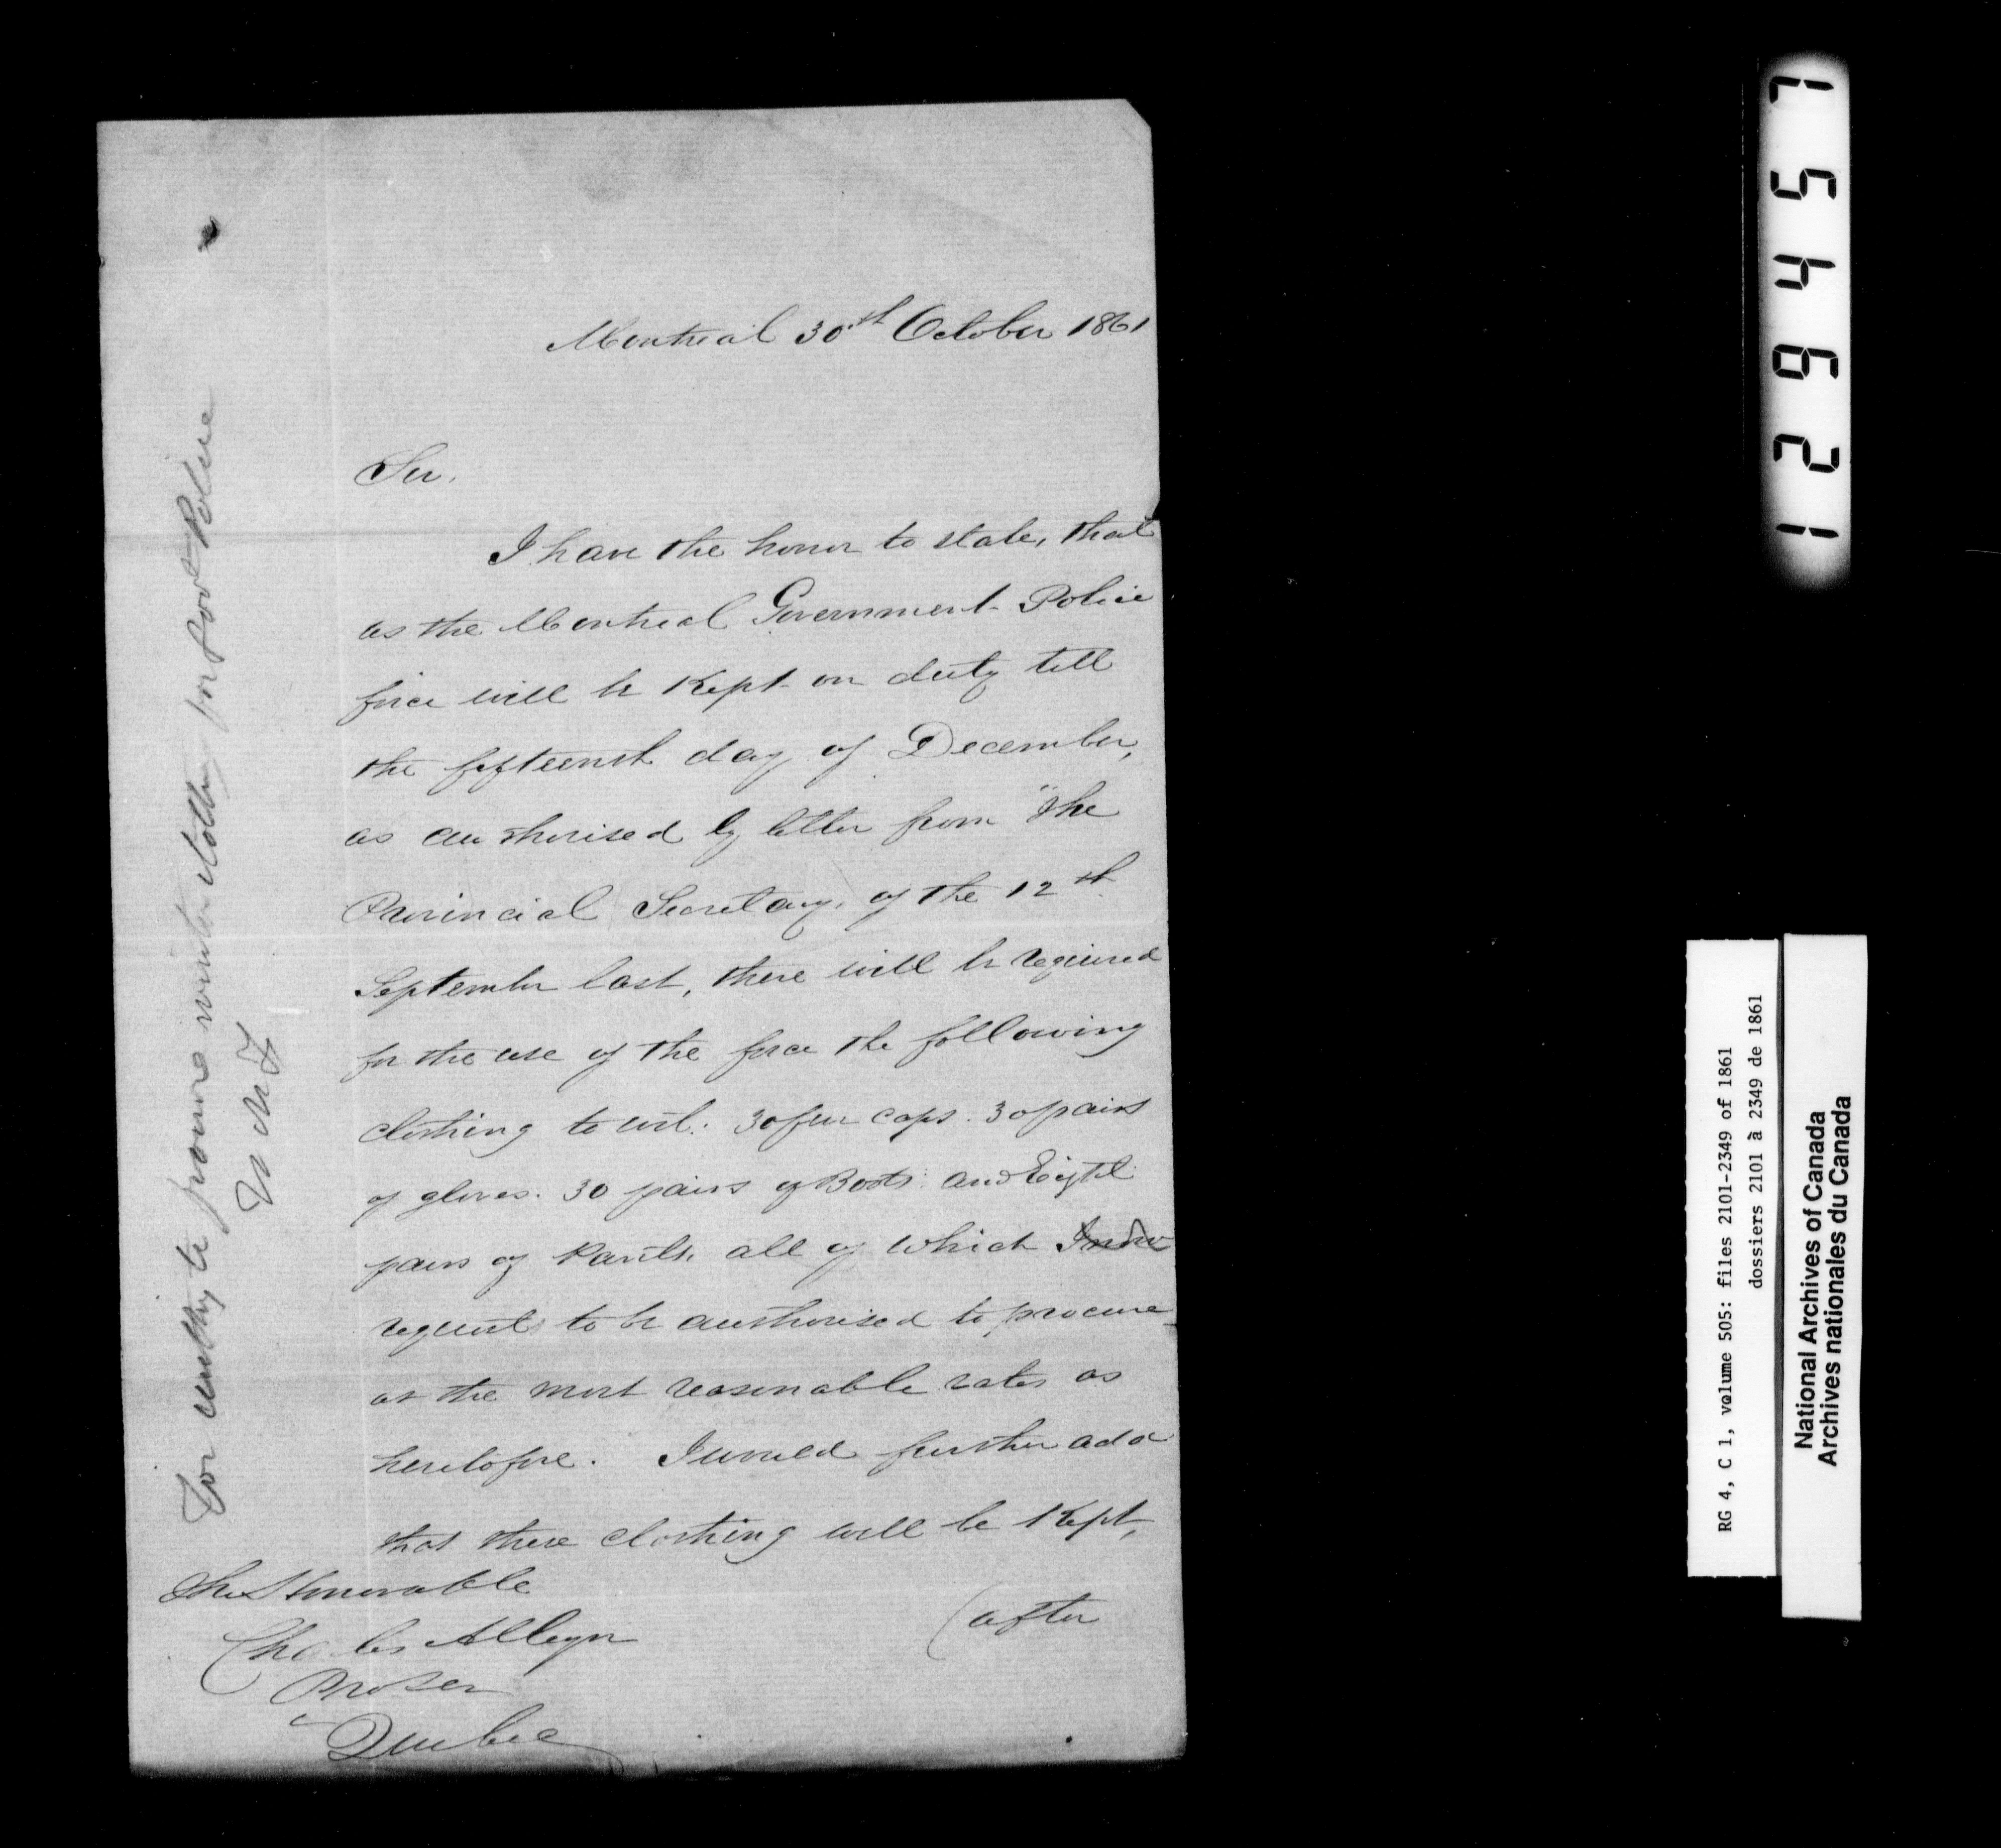 Montreal 30th October 1861
Sir.
I have the honor to state, that
as the Montreal Government Police
force will be Kept on duty till
the fifteenth day of December,
as authorised by letter from "The
Provincial Secretary, of the 12th
September last, there will be required
for the use of the force the following
clothing to wit: 30 fur caps. 30 pairs
of gloves. 30 pairs of Boots and Eight
pairs of Pants. all of which I
request to be authorised to procure
at the most reasonable rates as
heretofore. I would further add
that these clothing will be Kept,
(after
The Honorable
Charles Alleyn
Pro Sec
Quebec
For authy to procure winter clothing for Govt Police
129457
RG 4, C 1, volume 505: files 2101-2349 of 1861
dossiers 2101 à 2349 de 1861
National Archives of Canada
Archives nationales du Canada